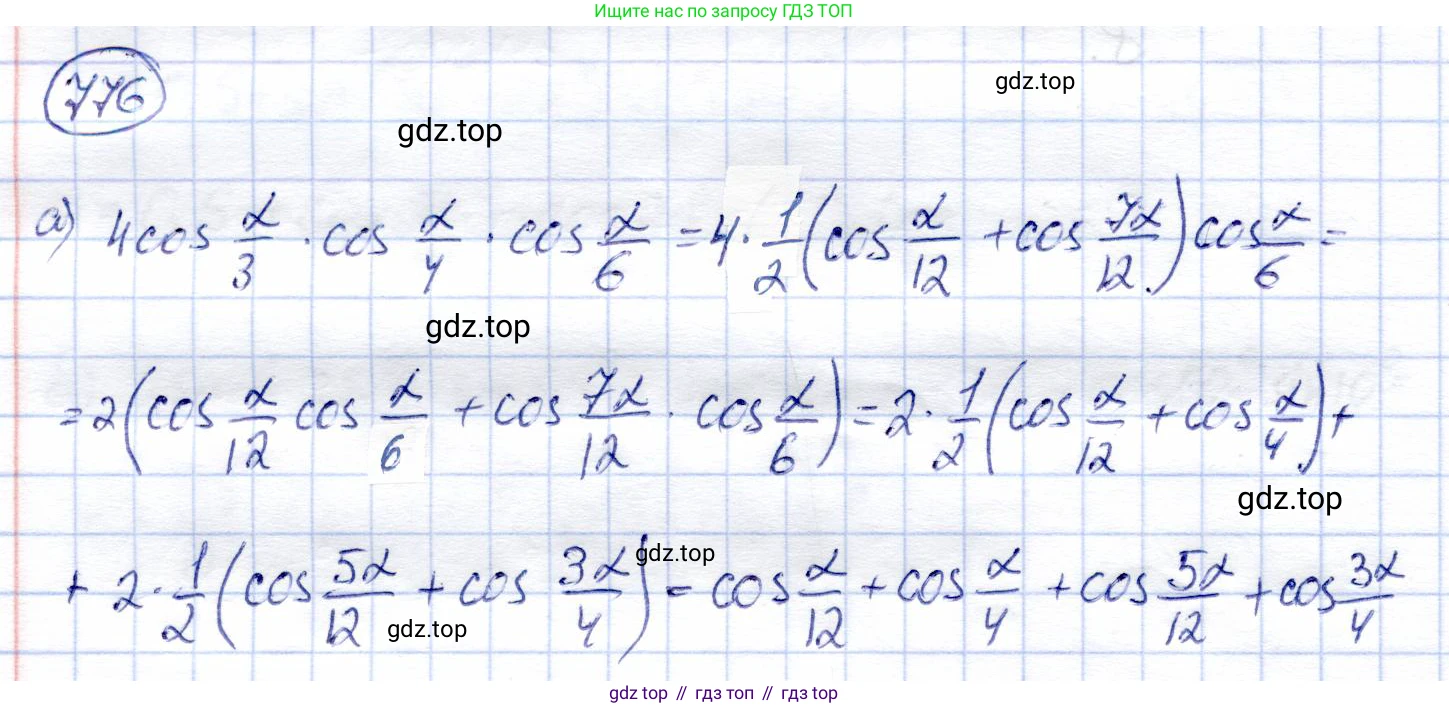 Ищите нас по запросу ГДЗ ТОП
776
gdz.top
gdz.top
а) 4cos α/3 · cos α/4 · cos α/6 = 4 · 1/2 (cos α/12 + cos 7α/12) cos α/6 =
gdz.top
= 2 (cos α/12 cos α/6 + cos 7α/12 · cos α/6) = 2 · 1/2 (cos α/12 + cos α/4) +
gdz.top
+ 2 · 1/2 (cos 5α/12 + cos 3α/4) = cos α/12 + cos α/4 + cos 5α/12 + cos 3α/4
gdz.top
gdz.top
gdz top // гдз топ // гдз top